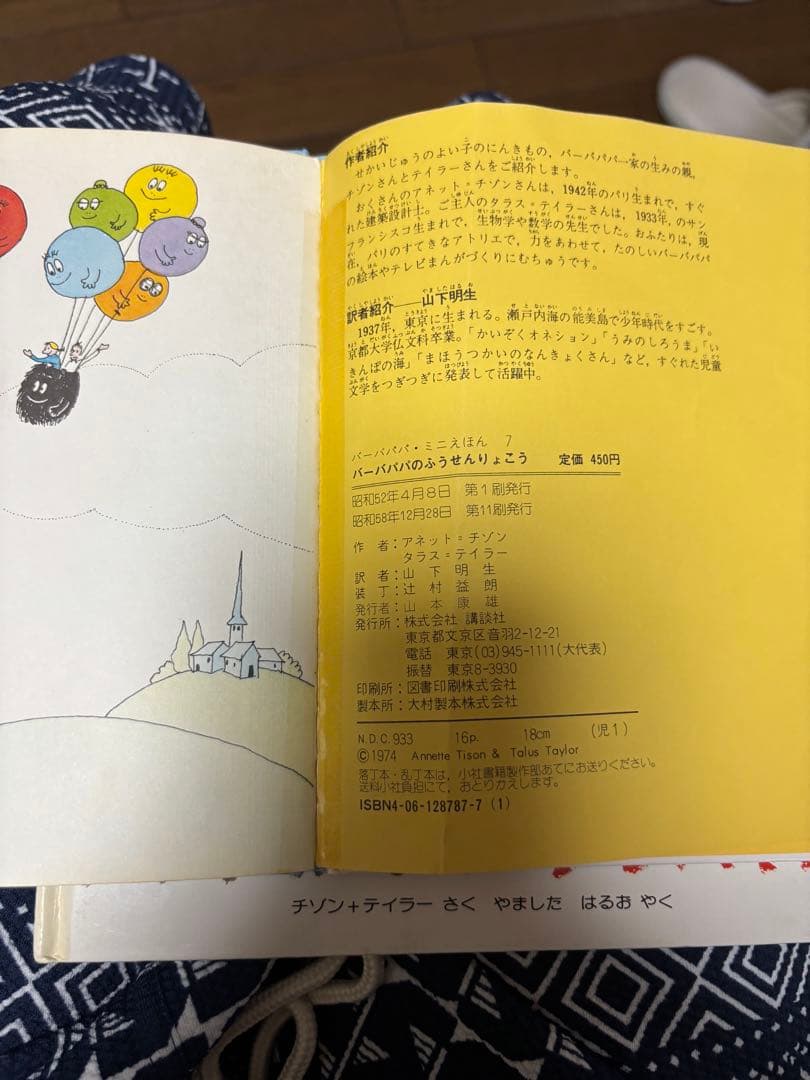 作者紹介
せかいじゅうのよい子のにんきもの，バーバパパ一家の生みの親，
チゾンさんとテイラーさんをご紹介します。
おくさんのアネット＝チゾンさんは，1942年のパリ生まれで，すぐ
れた建築設計士。ご主人のタラス＝テイラーさんは，1933年，のサン
フランシスコ生まれで，生物学や数学の先生でした。おふたりは，現
在，パリのすてきなアトリエで，力をあわせて，たのしいバーバパパ
の絵本やテレビまんがづくりにむちゅうです。
訳者紹介——山下明生
1937年，東京に生まれる。瀬戸内海の能美島で少年時代をすごす。
京都大学仏文科卒業。「かいぞくオネション」「うみのしろうま」「い
きんぽの海」「まほうつかいのなんきょくさん」など，すぐれた児童
文学をつぎつぎに発表して活躍中。
バーバパパ・ミニえほん 7
バーバパパのふうせんりょこう 定価 450円
昭和52年4月8日 第1刷発行
昭和58年12月28日 第11刷発行
作 者：アネット＝チゾン
タラス＝テイラー
訳 者：山下明生
装 丁：辻村益朗
発行者：山本康雄
発行所：株式会社 講談社
東京都文京区音羽2-12-21
電話 東京(03)945-1111(大代表)
振替 東京8-3930
印刷所：図書印刷株式会社
製本所：大村製本株式会社
N.D.C.933 16p. 18cm (児1)
©1974 Annette Tison & Talus Taylor
落丁本・乱丁本は，小社書籍製作部あてにお送りください。
送料小社負担にて，おとりかえします。
ISBN4-06-128787-7 (1)
チゾン+テイラー さく やました はるお やく